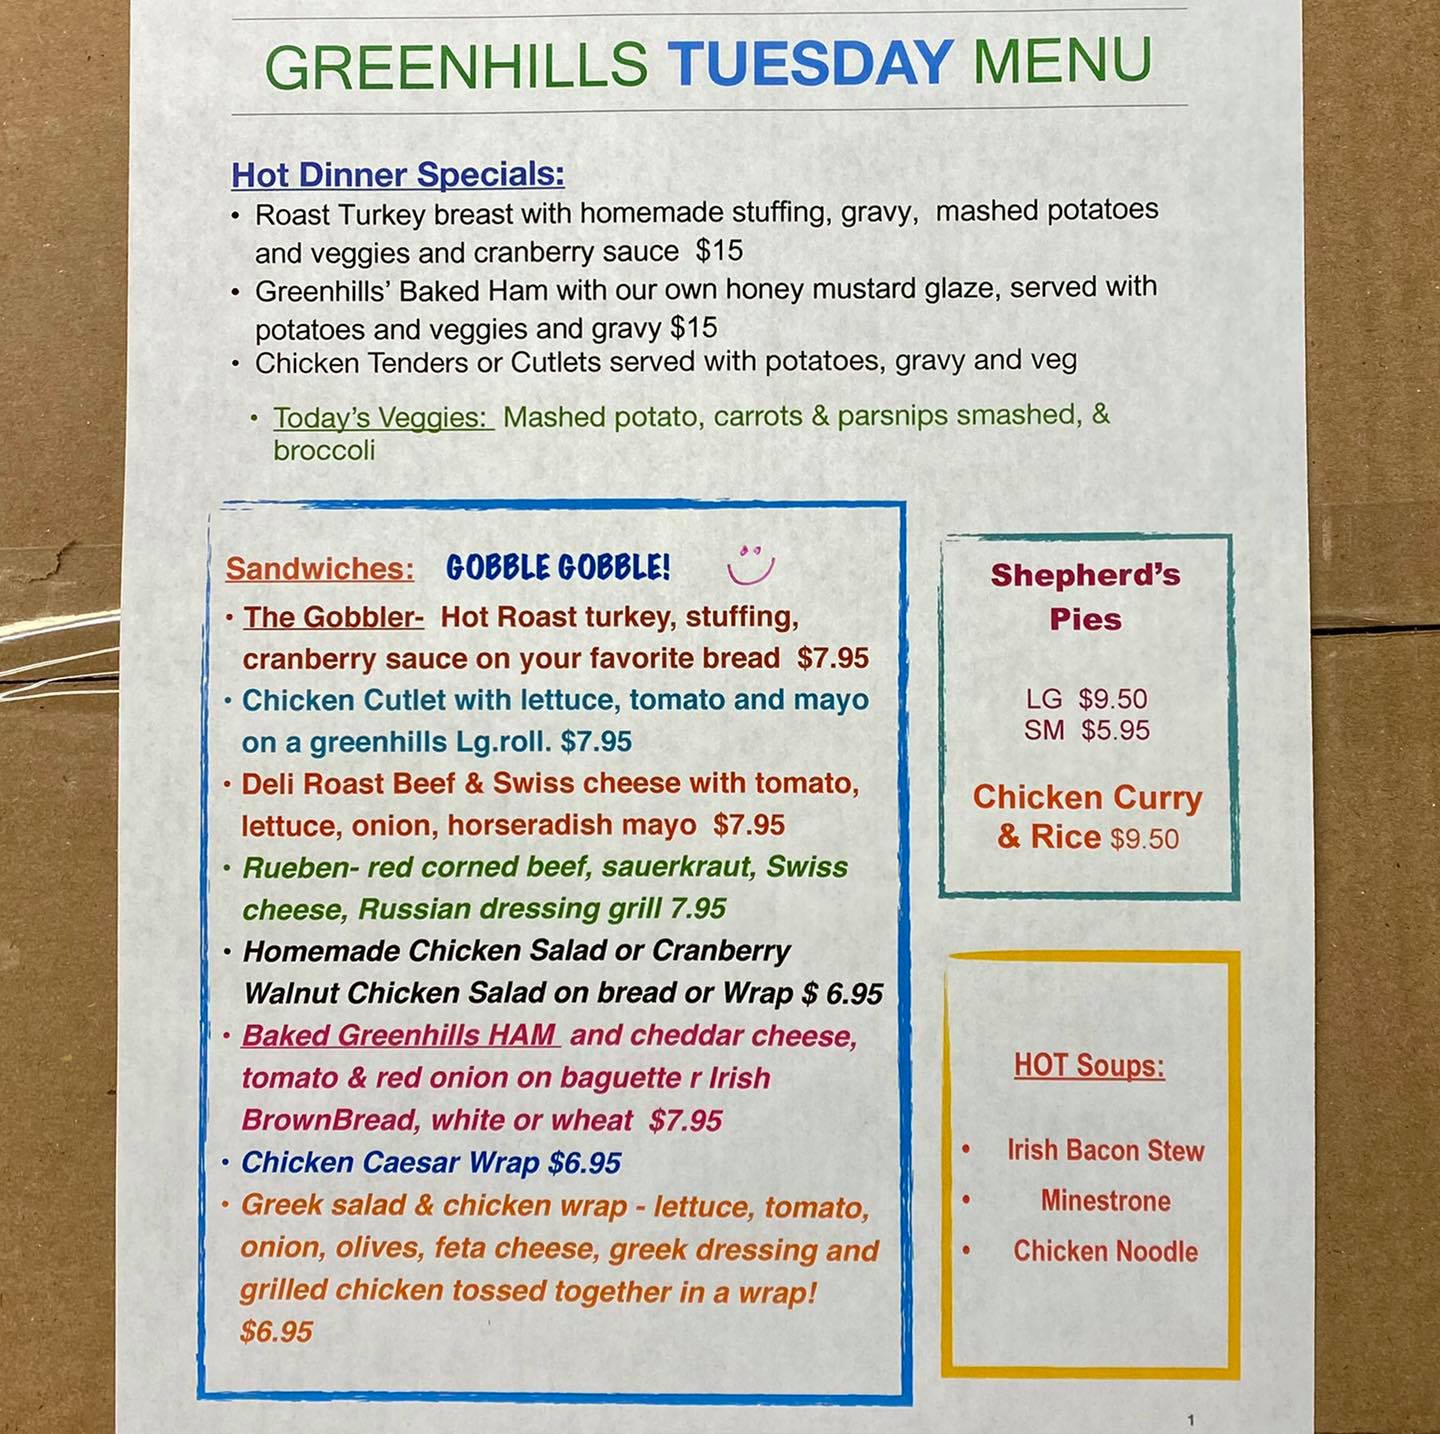 GREENHILLS TUESDAY MENU
Hot Dinner Specials:
• Roast Turkey breast with homemade stuffing, gravy, mashed potatoes
and veggies and cranberry sauce $15
• Greenhills’ Baked Ham with our own honey mustard glaze, served with
potatoes and veggies and gravy $15
• Chicken Tenders or Cutlets served with potatoes, gravy and veg
• Today’s Veggies: Mashed potato, carrots & parsnips smashed, &
broccoli
Sandwiches: GOBBLE GOBBLE!
• The Gobbler- Hot Roast turkey, stuffing,
cranberry sauce on your favorite bread $7.95
• Chicken Cutlet with lettuce, tomato and mayo
on a greenhills Lg.roll. $7.95
• Deli Roast Beef & Swiss cheese with tomato,
lettuce, onion, horseradish mayo $7.95
• Rueben- red corned beef, sauerkraut, Swiss
cheese, Russian dressing grill 7.95
• Homemade Chicken Salad or Cranberry
Walnut Chicken Salad on bread or Wrap $ 6.95
• Baked Greenhills HAM and cheddar cheese,
tomato & red onion on baguette r Irish
BrownBread, white or wheat $7.95
• Chicken Caesar Wrap $6.95
• Greek salad & chicken wrap - lettuce, tomato,
onion, olives, feta cheese, greek dressing and
grilled chicken tossed together in a wrap!
$6.95
Shepherd’s
Pies
LG $9.50
SM $5.95
Chicken Curry
& Rice $9.50
HOT Soups:
• Irish Bacon Stew
• Minestrone
• Chicken Noodle
1